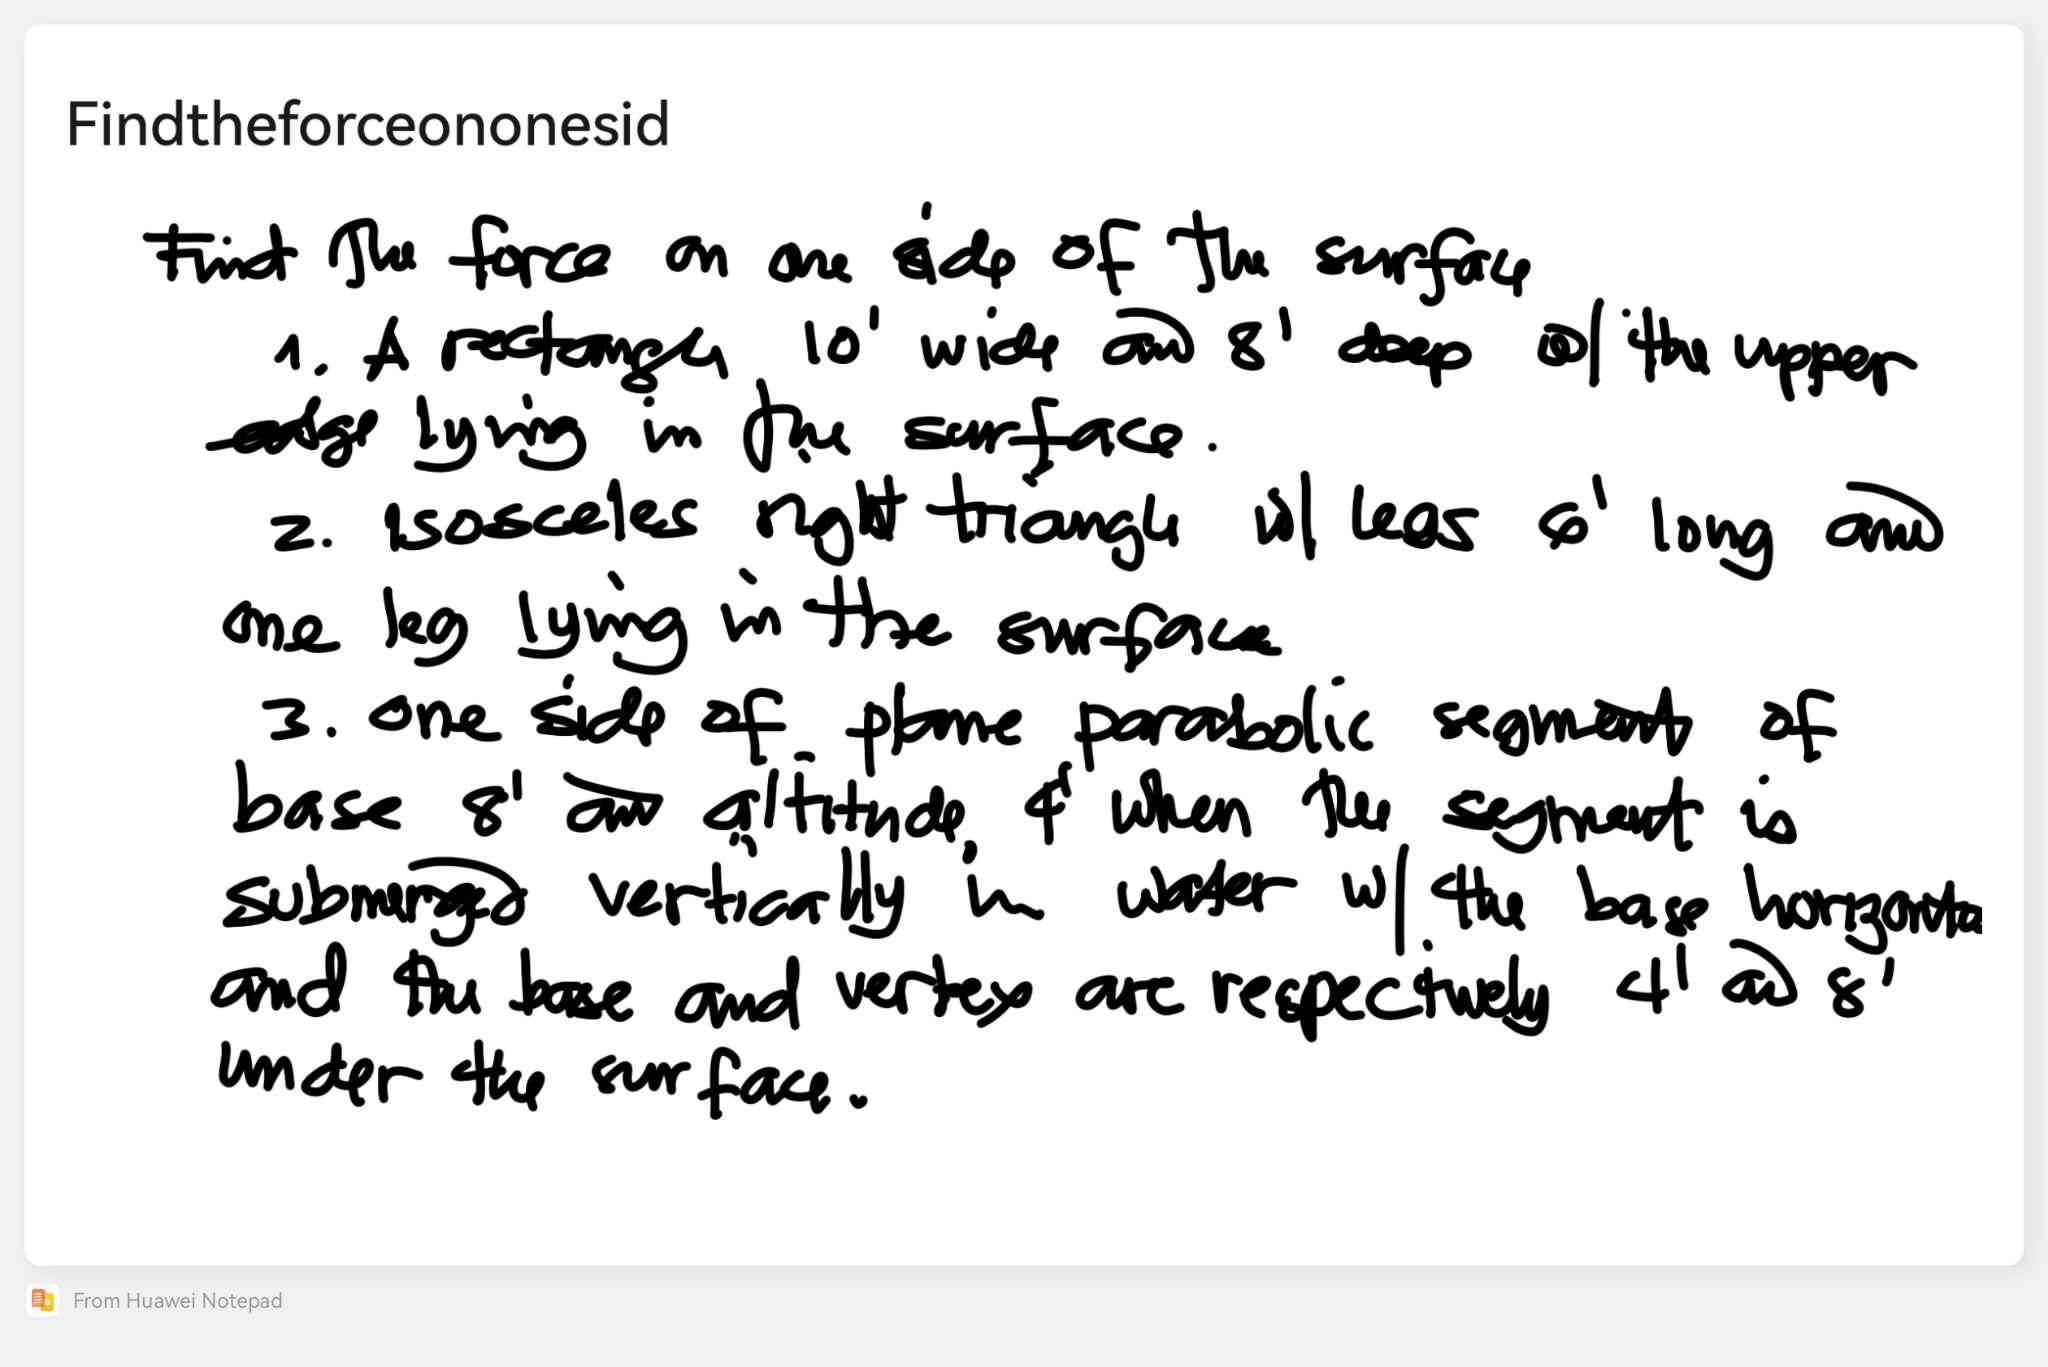 Findtheforceononesid
Find the force on one side of the surface
1. A rectangle 10' wide and 8' deep w/ the upper
edge lying in the surface.
2. Isosceles right triangle w/ legs long and
one leg lying in the surface
3. one side of plane parabolic segment of
base 8' and altitude 4' when the segment is
submerged vertically in water w/ the base horizonta
and the base and vertex are respectively 4' and 8'
under the surface.
From Huawei Notepad